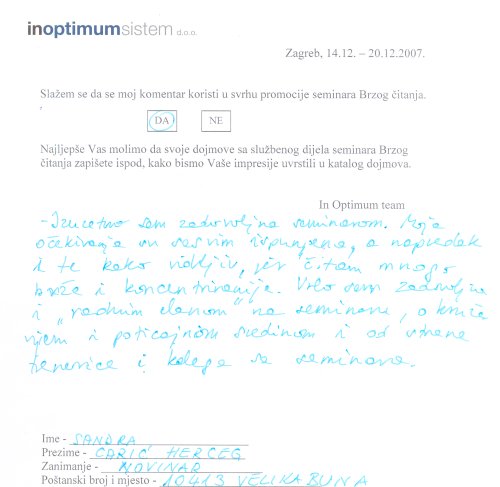 inoptimumsistem d.o.o.
Zagreb, 14.12. – 20.12.2007.
Slažem se da se moj komentar koristi u svrhu promocije seminara Brzog čitanja.
DA NE
Najljepše Vas molimo da svoje dojmove sa službenog dijela seminara Brzog
čitanja zapišete ispod, kako bismo Vaše impresije uvrstili u katalog dojmova.
In Optimum team
- Izuzetno sam zadovoljna seminarom. Moja
očekivanja su sasvim ispunjena, a napredak
i te kako vidljiv, jer čitam mnogo
brže i koncentriranije. Vrlo sam zadovoljna
i „radnim danom" na seminaru, okruže
njem i poticajnom sredinom i od strane
trenerice i kolega sa seminara.
Ime - SANDRA
Prezime - CARIĆ HERCEG
Zanimanje - NOVINAR
Poštanski broj i mjesto - 10413 VELIKA BUNA